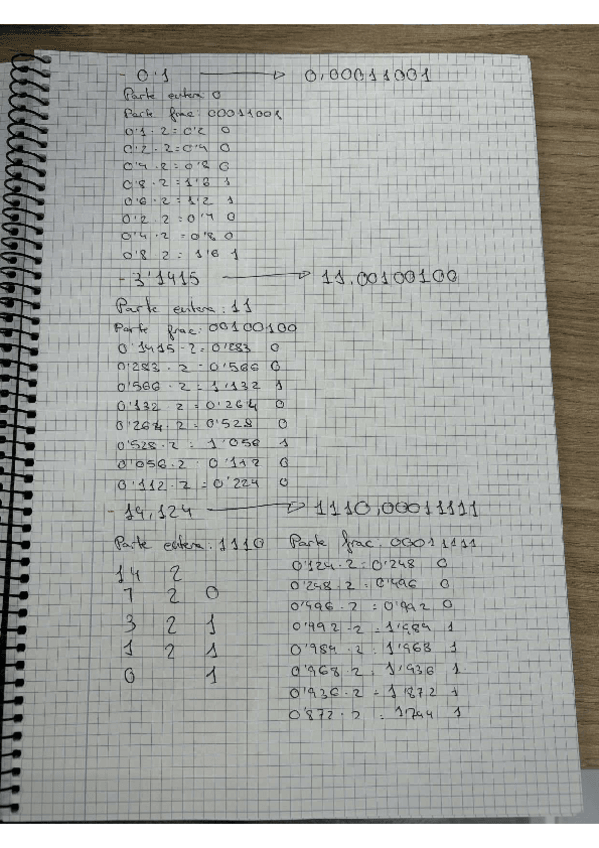 - 0'1 → 0,00011001
Parte entera: 0
Parte frac: 00011001
0'1 · 2 = 0'2 0
0'2 · 2 = 0'4 0
0'4 · 2 = 0'8 0
0'8 · 2 = 1'6 1
0'6 · 2 = 1'2 1
0'2 · 2 = 0'4 0
0'4 · 2 = 0'8 0
0'8 · 2 = 1'6 1
- 3'1415 → 11,00100100
Parte entera: 11
Parte frac: 00100100
0'1415 · 2 = 0'283 0
0'283 · 2 = 0'566 0
0'566 · 2 = 1'132 1
0'132 · 2 = 0'264 0
0'264 · 2 = 0'528 0
0'528 · 2 = 1'056 1
0'056 · 2 0'112 0
0'112 · 2 = 0'224 0
- 14,124 → 1110,00011111
Parte entera: 1110
14 2
7 2 0
3 2 1
1 2 1
0 1
Parte frac: 00011111
0'124 · 2 = 0'248 0
0'248 · 2 = 0'496 0
0'496 · 2 = 0'992 0
0'992 · 2 = 1'984 1
0'984 · 2 = 1'968 1
0'968 · 2 = 1'936 1
0'936 · 2 = 1'872 1
0'872 · 2 = 1'744 1